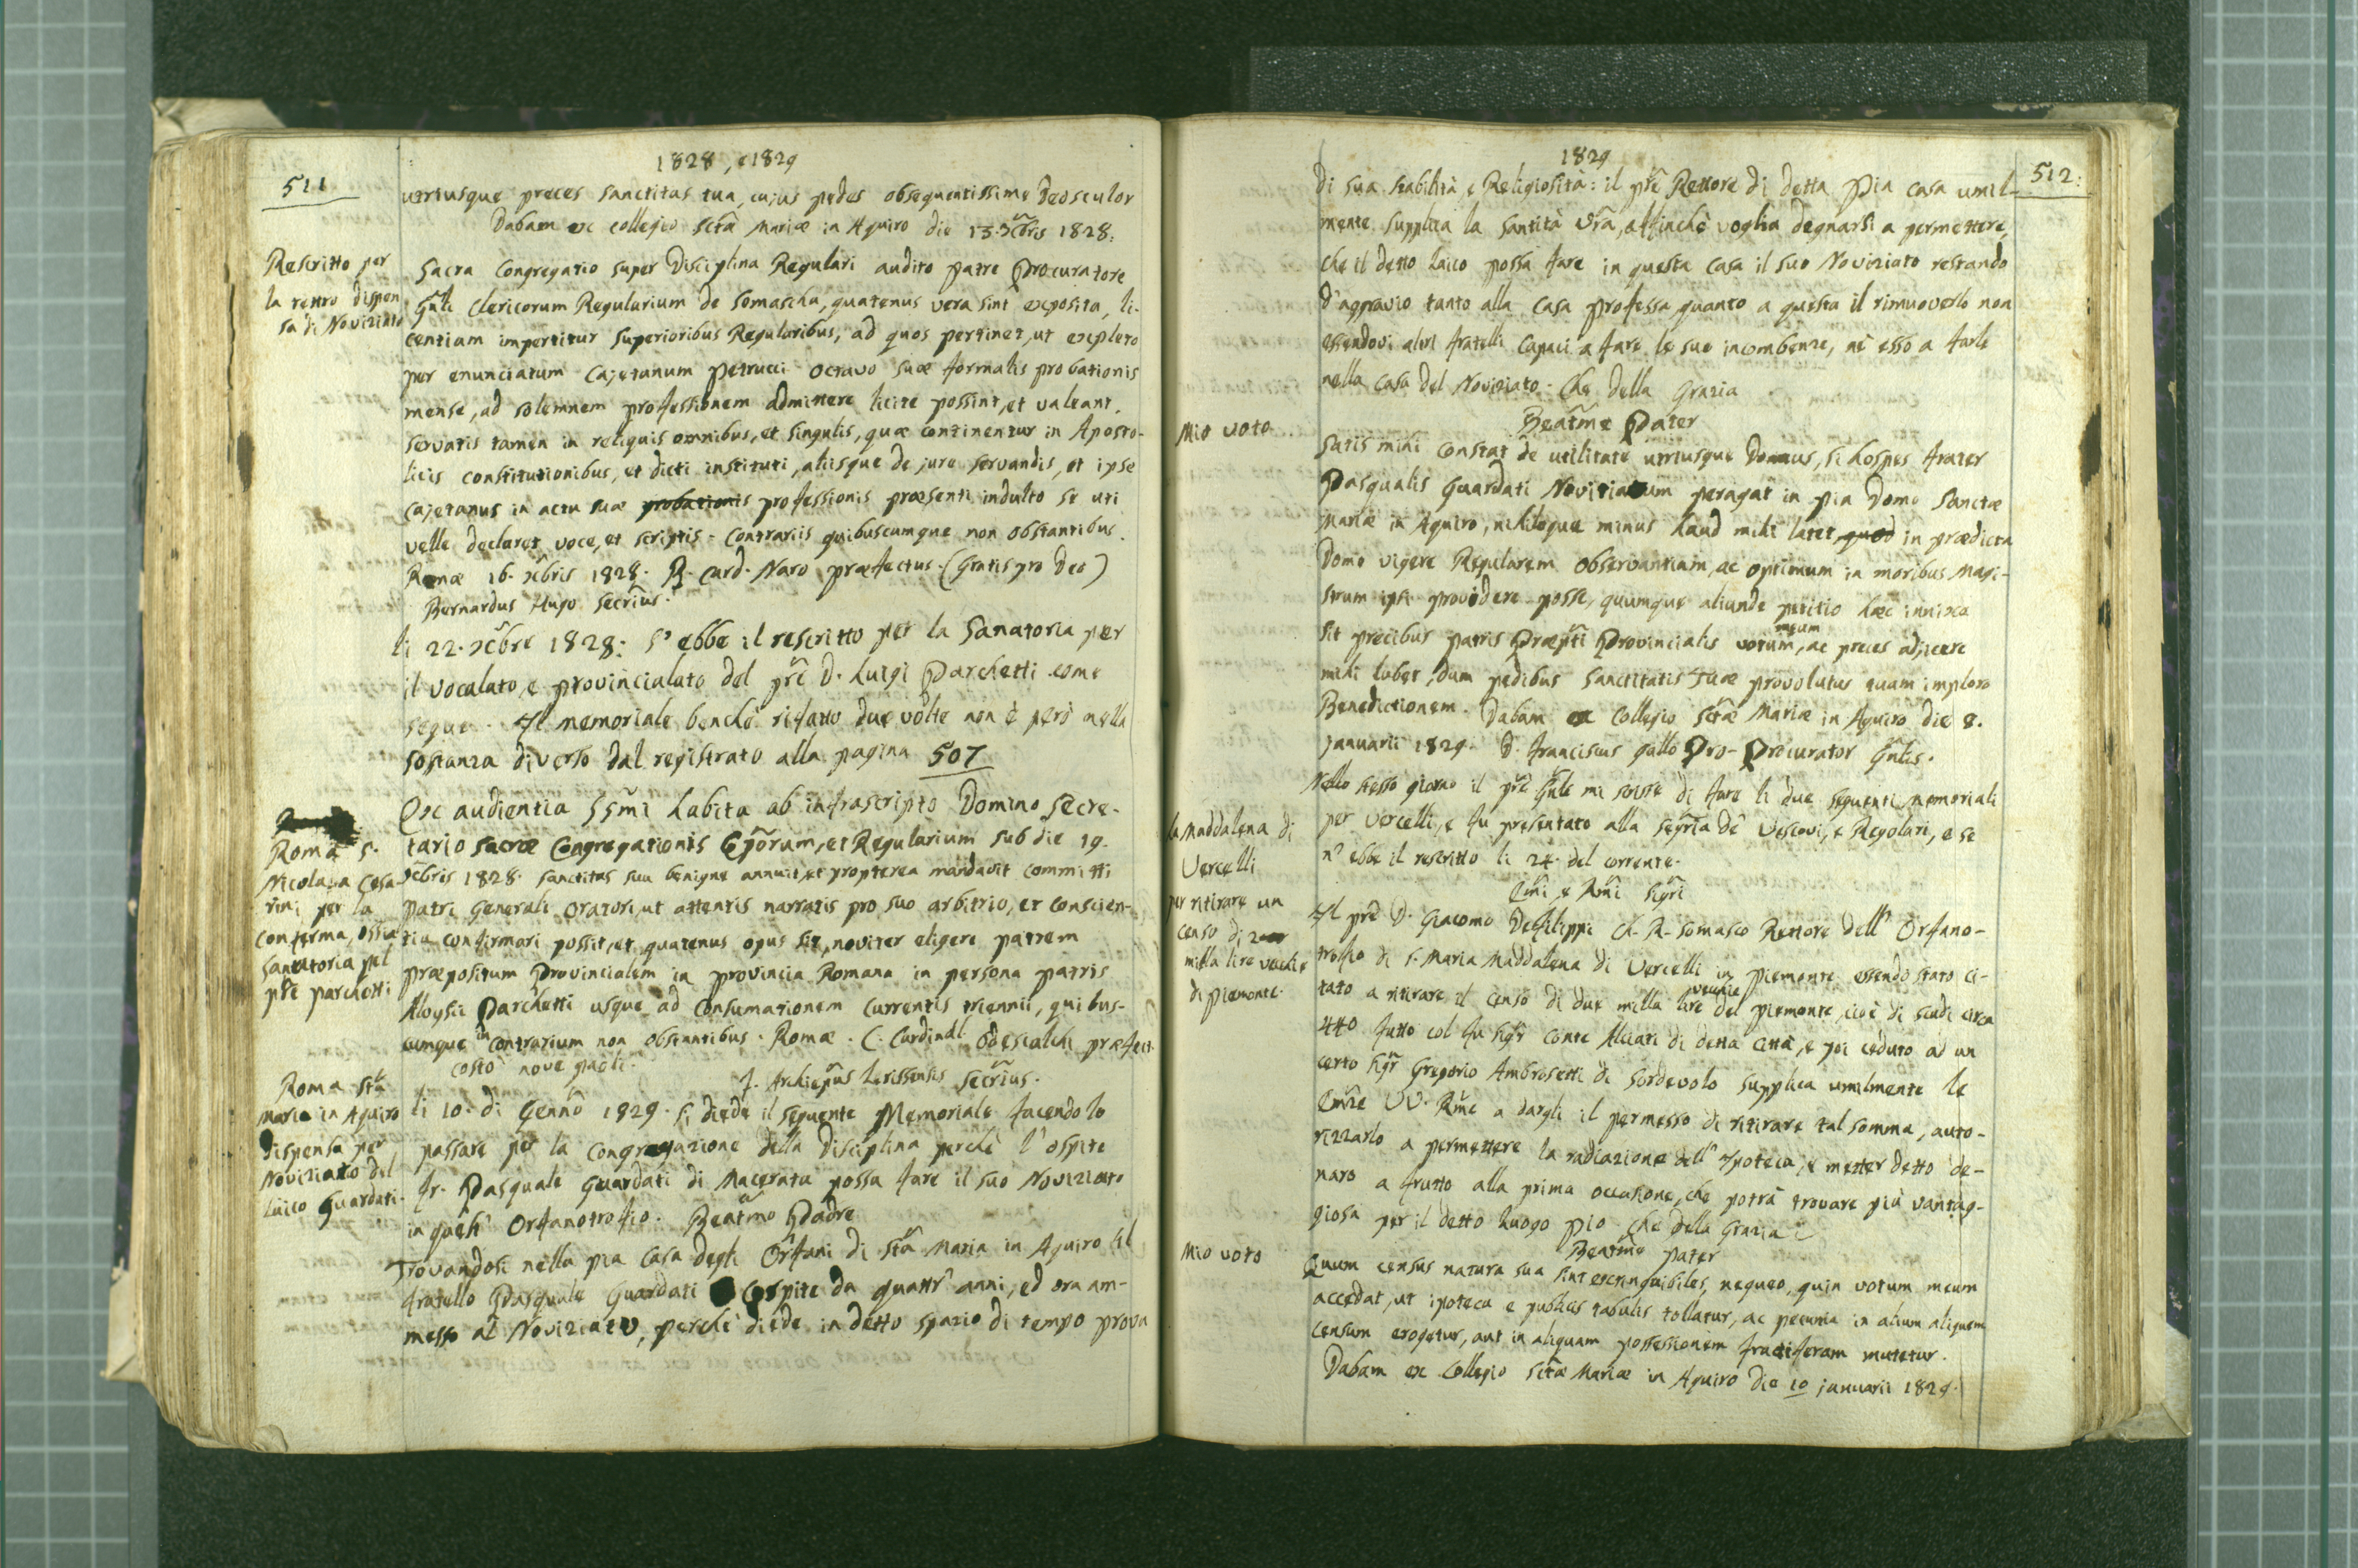 511
1828, e 1829
utriusque preces Sanctitas tua, cujus pedes obsequentissime deosculor
Dabam ex collegio Sctã Mariæ in Aquiro die 13. Xc̃bris 1828.
Rescritto per
la retro dispen
sa di Noviziato
Sacra Congregatio super Disciplina Regulari audito Patre Procuratore
Gñli Clericorum Regularium de Somascha, quatenus vera sint exposita, li-
centiam impertitur Superioribus Regularibus, ad quos pertinet, ut expleto
per enunciatum Cajetanum Petrucci octavo suæ formalis probationis
mense, ad solemnem professionem admittere licite possint, et valeant.
servatis tamen in reliquis omnibus, et singulis, quæ continentur in Aposto-
licis constitutionibus, et dicti instituti, aliisque de jure servandis, et ipse
Cajetanus in actu suæ probationis professionis præsenti indulto se uti
velle declaret voce, et scriptis - Contrariis quibuscumque non obstantibus.
Romæ 16. Xc̃bris 1828. Card. Naro Præfectus. (Gratis pro Deo)
Bernardus Hugo Secrĩus.
li 22. Xc̃bre 1828: S' ebbe il rescritto per la Sanatoria per
il vocalato, e provincialato del prẽ D. Luigi Parchetti come
segue. Il memoriale benchè rifatto due volte non è però nella
sostanza diverso dal registrato alla pagina 507
Roma S.
Nicola a Cesa
rini per la
conferma, ossia
Sanatoria pel
prẽ Parchetti
Ex audientia SSm̃i habita ab infrascripto Domino Secre-
tario Sacræ Congregationis Ep̃orum, et Regularium sub die 19.
Xc̃bris 1828. Sanctitas sua benigne annuit, et propterea mandavit committi
Patri Generali Oratori, ut attentis narratis pro suo arbitrio, et conscien-
tia confirmari possit, et quatenus opus sit, noviter eligere patrem
præpositum Provincialem in provincia Romana in persona patris
Aloysii Parchetti usque ad Consumationem currentis triennii, quibus-
cumque in contrarium non obstantibus. Romæ. C. Cardinal. Odescalchi Præfect.
costò nove paoli. J. Archiep̃us Larissensis Secrĩus.
Roma Stã
Maria in Aquiro
dispensa per
Noviziato del
laico Guardati.
li 10. di Gennõ 1829. Si diede il seguente Memoriale facendolo
passare per la Congregazione della Disciplina perchè l' ospite
fr. Pasquale Guardati di Macerata possa fare il suo Noviziato
in quest' Orfanotrofio. Beatm̃o Padre
Trovandosi nella pia Casa degli Orfani di Stã Maria in Aquiro il
fratello Pasquale Guardati Ospite da quattr' anni, ed ora am-
messo al Noviziato, perchè diede in detto spazio di tempo prova
512.
1829
di sua stabilità, e Religiosità: il prẽ Rettore di detta Pia casa umil-
mente supplica la Santità Vrã, affinchè voglia degnarsi a permettere,
che il detto laico possa fare in questa Casa il suo Noviziato restando
d'aggravio tanto alla Casa professa quanto a questa il rimuoverlo non
essendovi altri fratelli capaci a fare le sue incombenze, nè esso a farle
nella Casa del Noviziato. Che della Grazia
Mio voto.
Beatm̃e Pater
Satis mihi constat de utilitate utriusque Domus, si hospes frater
Pasqualis Guardati Novitiatum peragat in pia Domo Sanctæ
Mariæ in Aquiro, nihiloque minus haud mihi latet, quod in prædicta
Domo vigere Regularem Observantiam, ac optimum in moribus Magi-
strum ipsi providere posse, quumque aliunde petitio hæc innixa
sit precibus patris Præpt̃i Provincialis votum meum, ac preces adjicere
mihi lubet, dum pedibus Sanctitatis Tuæ provolutus quam imploro
Benedictionem. Dabam ex Collegio Sctæ̃ Mariæ in Aquiro die 8.
januarii 1829. D. Franciscus Gallo Pro-Procurator Gñlis.
la Maddalena di
Vercelli
per ritirare un
censo di 2
milla lire vecchie
di Piemonte.
Nello stesso giorno il prẽ Gñle mi scrisse di fare li due seguenti memoriali
per Vercelli, e fu presentato alla segrĩa de' Vescovi, e Regolari, e se
n' ebbe il rescritto li 24. del corrente.
Em̃i e Rm̃i Sigrĩ
Il prẽ D. Giacomo Defilippi Ch. R. Somasco Rettore dell' Orfano-
trofio di S. Maria Maddalena di Vercelli in Piemonte essendo stato ci-
tato a ritirare il censo di due milla lire vecchie del piemonte, cioè di scudi circa
440 fatto col fu Sigr̃ Conte Alciati di detta Città, e poi ceduto ad un
certo Sigr̃ Gregorio Ambrosetti di Sordevolo supplica umilmente le
Em̃ze VV. Rm̃e a dargli il permesso di ritirare tal somma, auto-
rizzarlo a permettere la radiazione dell' Ipoteca, e metter detto de-
naro a frutto alla prima occasione, che potrà trovare più vantag-
giosa per il detto Luogo Pio. Che della Grazia
Mio voto
Beatm̃e Pater
Quum census natura sua sint extinguibiles, nequeo, quin votum meum
accedat, ut ipoteca e publicis tabulis tollatur, ac pecunia in alium aliquem
censum erogetur, aut in aliquam possessionem fructiferam mutetur.
Dabam ex Collegio Sctæ̃ Mariæ in Aquiro die 10 januarii 1829.